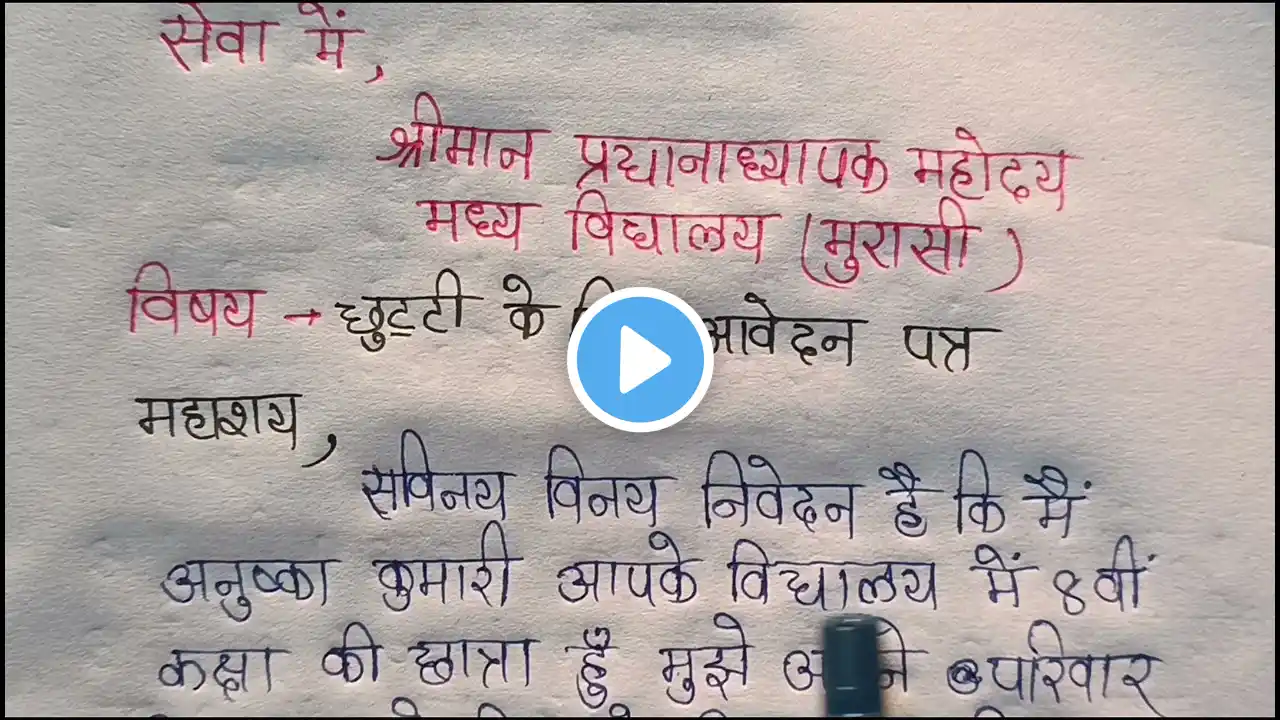 सेवा में,
श्रीमान प्रधानाध्यापक महोदय
मध्य विद्यालय (मुरासी)
विषय → छुट्टी के आवेदन पत्र
महाशय,
सविनय विनय निवेदन है कि मैं
अनुष्का कुमारी आपके विद्यालय में 8वीं
कक्षा की छात्रा हूँ मुझे परिवार